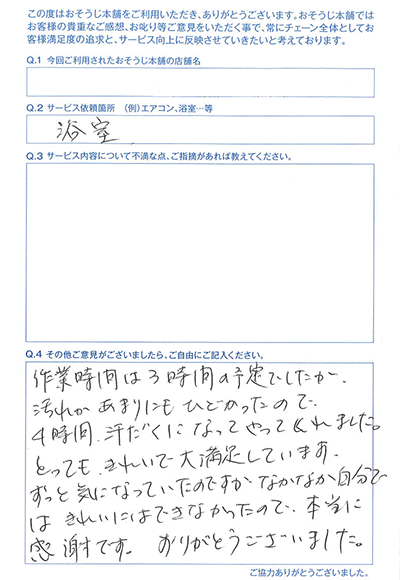 この度はおそうじ本舗をご利用いただき、ありがとうございます。おそうじ本舗では
お客様の貴重なご感想、お叱り等ご意見をいただく事で、常にチェーン全体としてお
客様満足度の追求と、サービス向上に反映させていきたいと考えております。
Q.1 今回ご利用されたおそうじ本舗の店舗名
Q.2 サービス依頼箇所 (例)エアコン、浴室…等
浴室
Q.3 サービス内容について不満な点、ご指摘があれば教えてください。
Q.4 その他ご意見がございましたら、ご自由にご記入ください。
作業時間は3時間の予定でしたが、
汚れがあまりにもひどかったので、
4時間、汗だくになってやってくれました。
とっても、きれいで大満足しています。
ずっと気になっていたのですがなかなか自分で
はきれいにはできなかったので、本当に
感謝です。ありがとうございました。
ご協力ありがとうございました。